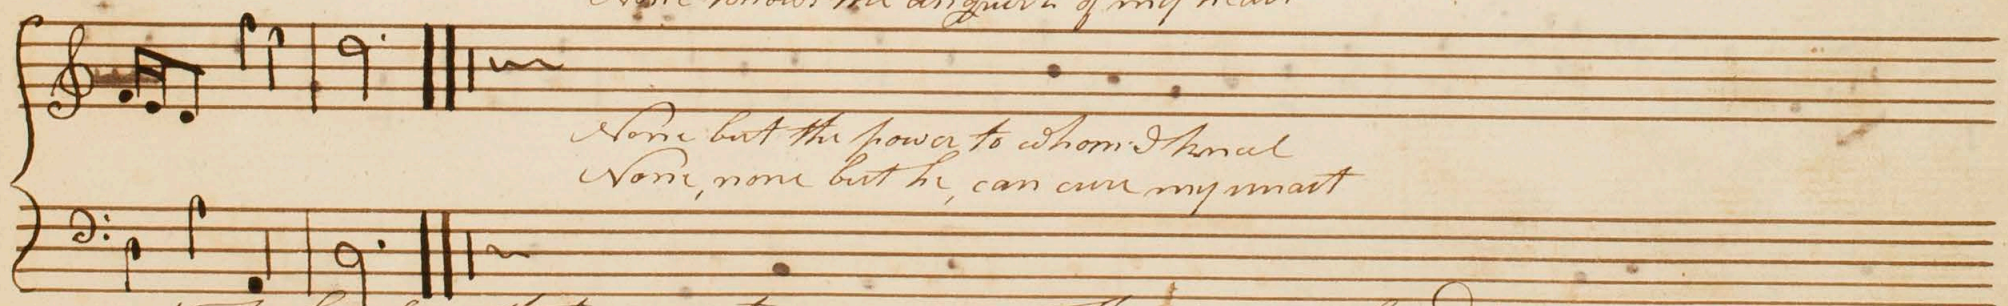 None knows the anguish of my heart
None but the power to whom I kneel
None, none but he, can cure my smart